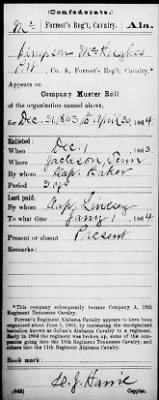 (Confederate.)
Mc Forrest's Reg't, Cavalry. Ala.
Simpson McHughes
Pvt, Co. A, Forrest's Reg't, Cavalry.*
Appears on
Company Muster Roll
of the organization named above,
for Dec. 31, 1863, to April 30, 1864
Enlisted:
When Dec. 1, 1863
Where Jackson, Tenn
By whom Cap. Baker
Period 3 yrs
Last paid:
By whom Cap. Lindsey
To what time Jany 1, 1864
Present or absent Present
Remarks:
*This company subsequently became Company A, 18th
Regiment Tennessee Cavalry.
Forrest's Regiment Alabama Cavalry appears to have been
organized about June 1, 1863, by increasing the reorganized
battalion known as Julian's Alabama Cavalry to a regiment.
Early in 1864 the regiment was broken up, some of the com-
panies going into the 18th Regiment Tennessee Cavalry, and
others into the 11th Regiment Alabama Cavalry.
Book mark:
(642) Copyist.